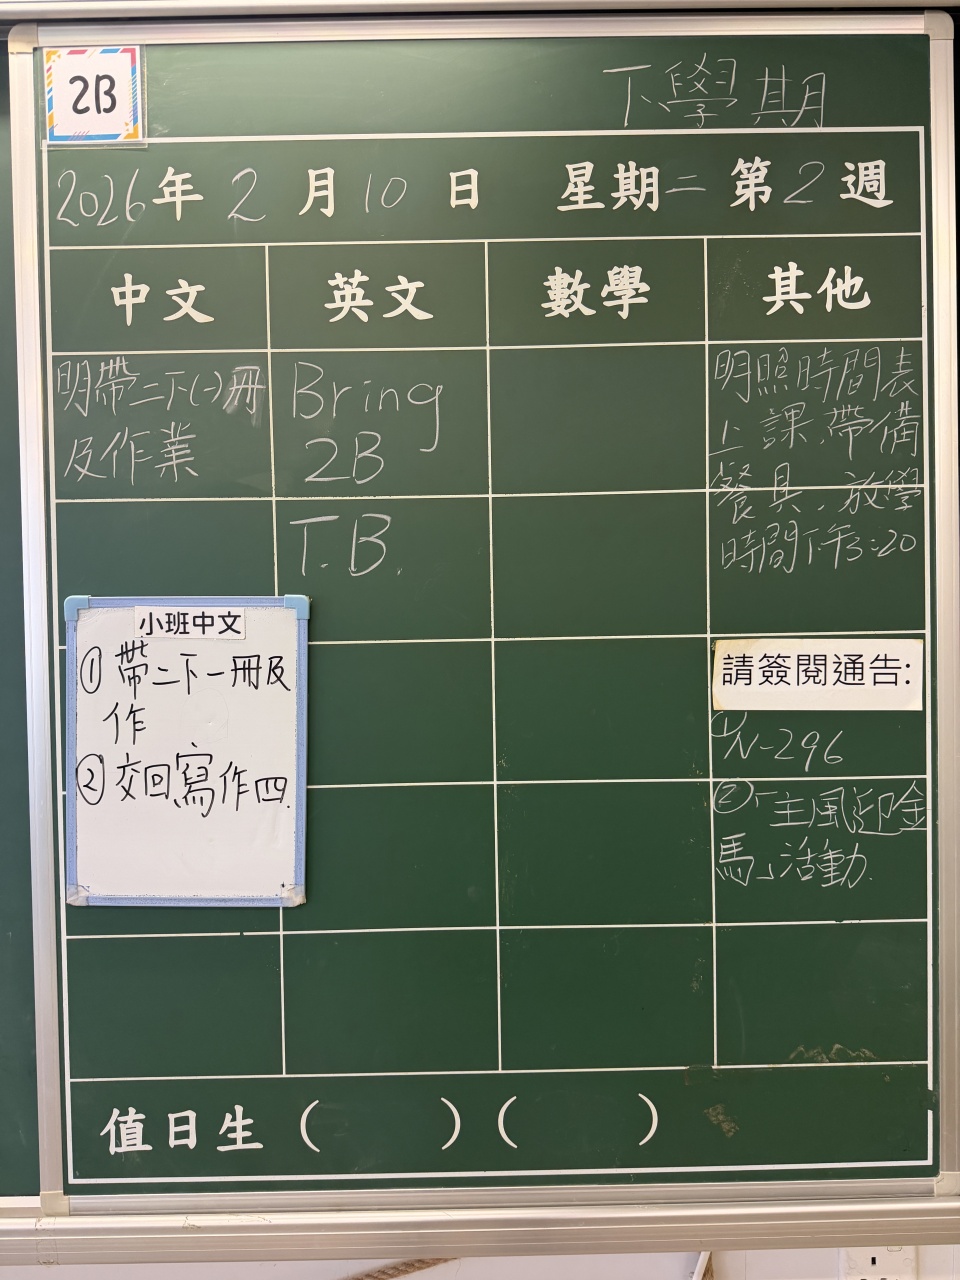 2B
下學期
2026年2月10日 星期二 第2週
中文 英文 數學 其他
明帶二下(一)冊
及作業
Bring
2B
T.B.
明照時間表
上課,帶備
餐具,放學
時間下午3:20
小班中文
① 帶二下一冊及
作
② 交回寫作四.
請簽閱通告:
①N-296
②「主風迎金
馬」活動.
值日生 ( ) ( )